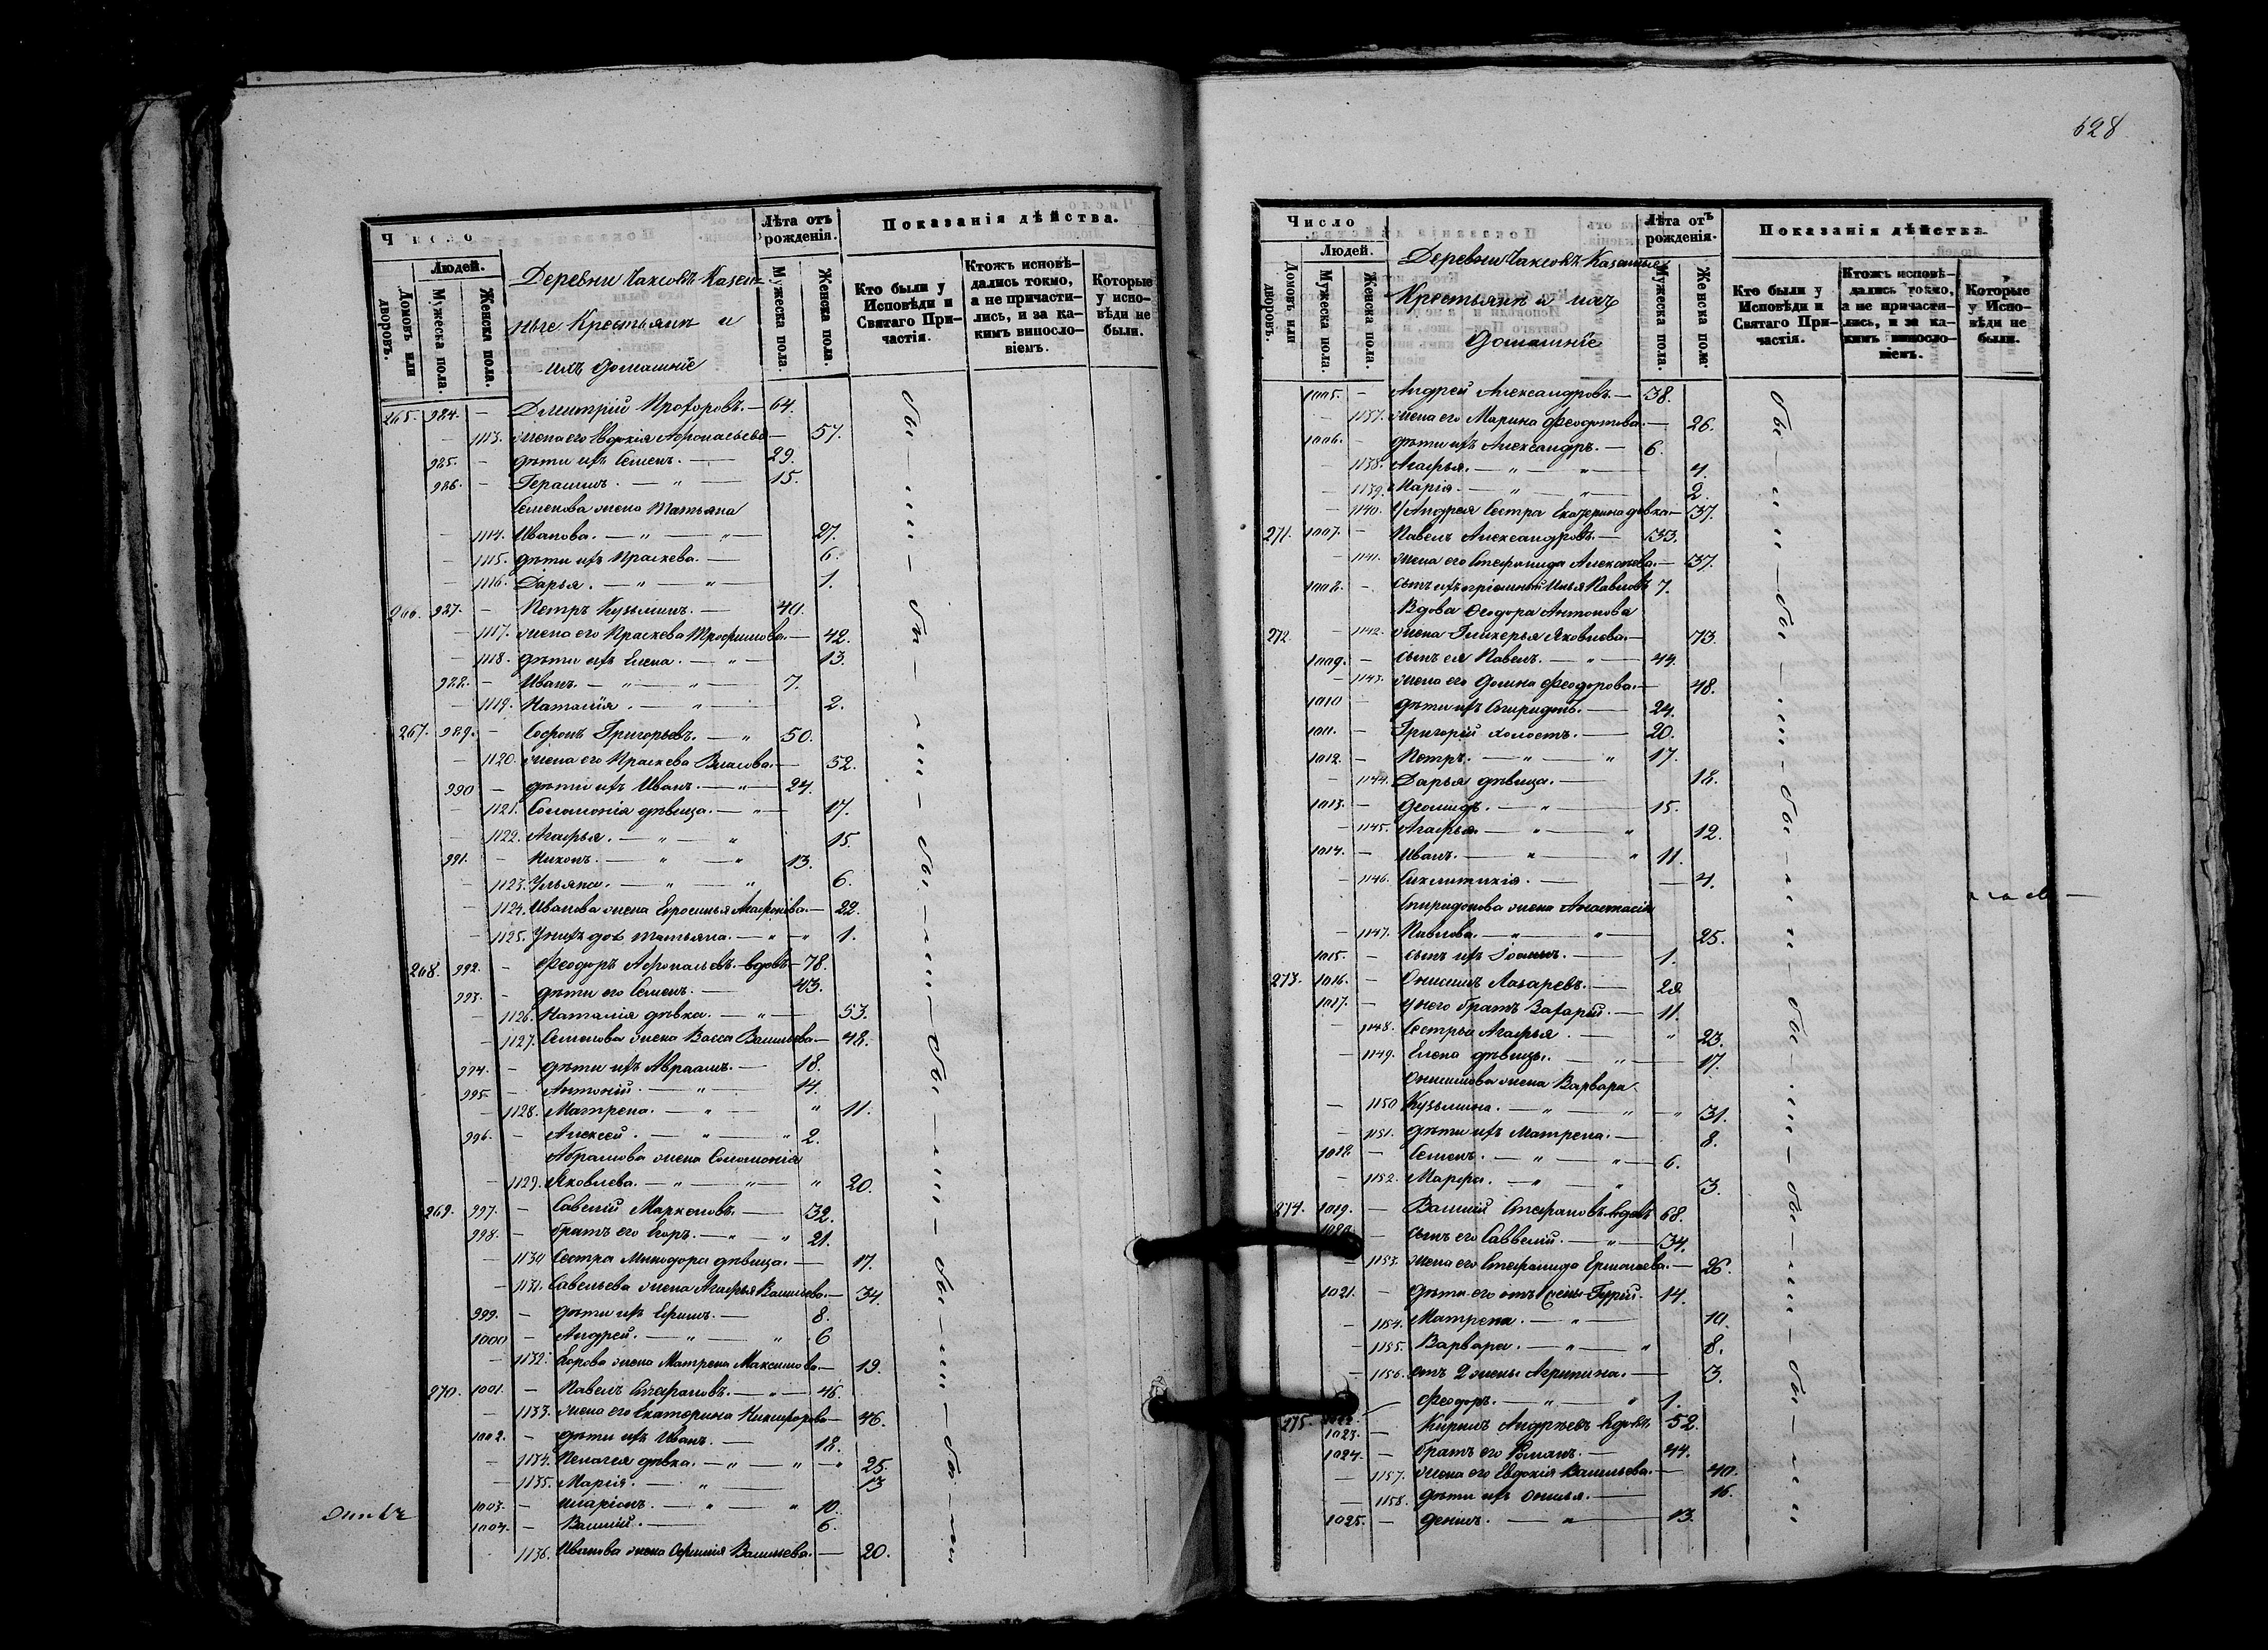 Число
Людей.
Домовъ или дворовъ.
Мужеска пола.
Женска пола.
Деревни Чаксовъ Казен-
ные Крестьяне и
ихъ домашніе
Лѣта отъ рожденія.
Мужеска пола.
Женска пола.
Показанія дѣйства.
Кто были у Исповѣди и Святаго При-частія.
Ктожъ исповѣ-дались токмо, а не причасти-лись, и за ка-кимъ винosло-віемъ.
Которые у испо-вѣди не были.
265. 984. — Димитрій Прохоровъ. — 64.
— 1113. жена его Евдокія Афонасьева — 57.
985. — дѣти ихъ Семенъ. — 29.
986. — Герасимъ. — " — 15.
Семенова жена Татьяна
— 1114. Иванова. — " — " — 27.
— 1115. дѣти ихъ Праскева. — 6.
— 1116. Дарья. — " — " — 1.
266. 987. — Петръ Кузьминъ. — 40.
— 1117. жена его Праскева Трофимова. — 42.
— 1118. дѣти ихъ Елена. — " — 13.
988. — Иванъ. — " — " — 7.
— 1119. Наталія. — " — 2.
267. 989. — Софонъ Григорьевъ. — " 50.
— 1120. жена его Праскева Власова. — 52.
990 — дѣти ихъ Иванъ. — " — 24.
— 1121. Соломонія дѣвица. — " — 17.
— 1122. Агафья. — " — " 15.
991. — Никонъ. — " — " 13.
— 1123. Ульяна. — " — " 6.
— 1124. Иванова жена Ефросинья Агафонова. — 22.
— 1125. У нихъ дочь Татьяна. — " — " 1.
268. 992. — Феодоръ Афонасьевъ. вдовъ — 78.
993. — дѣти его Семенъ. — 43.
— 1126. Наталія дѣвка. — " — 53.
— 1127. Семенова жена Васса Васильева — 48.
994. — дѣти ихъ Авраамъ. — 18.
995. — Антоній. — " — 14.
— 1128. Матрена. — " — " 11.
996. — Алексей. — " — " 2.
Абрамова жена Соломонія
— 1129. Яковлева. — " — " — " 20.
269. 997. — Савелій Маркеловъ. — 32.
998. — братъ его Егоръ. — " — " 21.
— 1130 Сестра Минодора дѣвица. — 17.
— 1131. Савельева жена Агафья Васильева. — 34.
999. — дѣти ихъ Ефимъ. — 8.
1000 — Андрей. — " — " 6
— 1132. Егорова жена Матрена Максимова. — 19.
270. 1001. — Павелъ Стефановъ. — " — 46.
— 1133. жена его Екатерина Никифорова — 46.
1002. — дѣти ихъ Иванъ. — 18.
— 1134. Пелагея дѣвка. — " — " — " 25.
— 1135. Марія. — " — 13
1003. — Иларіонъ. — " — " 10.
1004. — Василій. — 6.
1136. Иванова жена Васильева. — 20.
628
Число
Людей.
Домовъ или дворовъ.
Мужеска пола.
Женска пола.
Деревни Чаксовъ Казенные
Крестьяне и ихъ
домашніе
Лѣта отъ рожденія.
Мужеска пола.
Женска пола.
Показанія дѣйства.
Кто были у Исповѣди и Святаго При-частія.
Ктожъ исповѣ-дались токмо, а не причасти-лись, и за ка-кимъ винosло-віемъ.
Которые у Испо-вѣди не были.
1005. — Андрей Александровъ. — 38.
— 1137. жена его Марина Феодотова. — 26.
1006. — дѣти ихъ Александръ. — 6.
— 1138. Агафья. — " — " — 4.
— 1139. Марія. — " — " — 2.
— 1140. У Андрея Сестра Екатерина дѣвка — 37.
271. 1007. — Павелъ Александровъ. — 33.
— 1141. жена его Стефанида Алексѣева. — 37.
1008. — сынъ ихъ пріемный Илья Павловъ 7.
Вдова Феодора Антонова
272. — 1142. жена Гликерья Яковлева. — 73.
1009. — сынъ ея Павелъ. — " — 44.
— 1143. жена его Домна Феодорова. — 48.
1010 — дѣти ихъ Спиридонъ. — 24.
1011. — Григорій холостъ. — 20.
1012. — Петръ. — " — " 17.
— 1144. Дарья дѣвица. — 18.
1013. — Діомидъ. — " — 15.
— 1145. Агафья. — " — " 12.
1014. — Иванъ. — " — " 11.
— 1146. Синклитикія. — 4.
Спиридонова жена Анастасія
— 1147. Павлова. — " — " — 25.
1015. — сынъ ихъ Іоаннъ. — 1.
273. 1016. — Онисимъ Лазаревъ. — 28
1017. — у него братъ Захарій. — 11.
— 1148. Сестры Агафья. — " 23.
— 1149. Елена дѣвицы. — " — 17.
Онисимова жена Варвара
— 1150 Кузьмина. — " — " — " 31.
— 1151. дѣти ихъ Матрена. — 8.
1018 — Семенъ. — " — " — 6.
— 1152. Марфа. — " — " 3.
274. 1019. — Василій Стефановъ вдовъ 68.
1020. — сынъ его Савелій. — " — 34.
— 1153. жена его Стефанида Ермолаева. — 26.
1021. — дѣти его отъ 1 жены Гурій. 14.
— 1154. Матрена. — " — 10.
— 1155. Варвара. — " — " 8.
— 1156. отъ 2 жены Агрипина. — 3.
1022. — Феодоръ. — " — " 1.
275. 1023. — Кирилъ Андреевъ вдовъ 52.
1024. — братъ его Романъ. — 44.
— 1157. жена его Евдокія Васильева. — 40.
— 1158. дѣти ихъ — 16.
1025. — Денисъ. — " — 13.